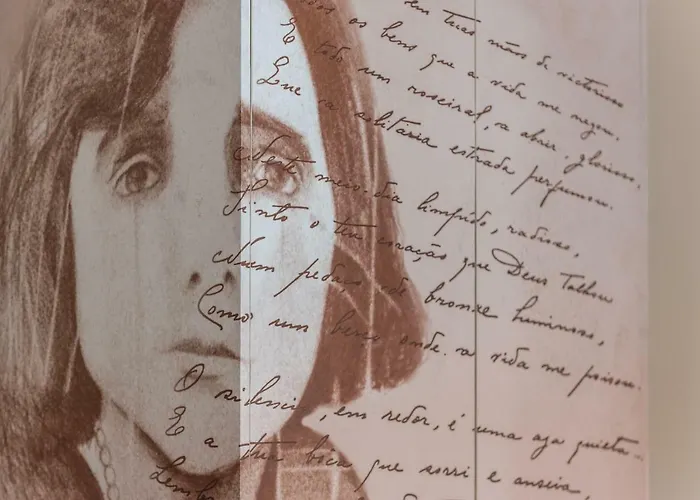 em tuas mãos de victorioso
os bens que a vida me negou,
E todo um roseiral, a abrir, glorioso,
Que a solitária estrada perfumou.
Neste meio-dia limpido, radioso,
Sinto o teu coração que Deus talhou
Num pedaço de bronze luminoso,
Como um berço onde a vida me pousou.
O silencio, em redor, é uma aza quieta...
E a tua boca que sorri e anseia,